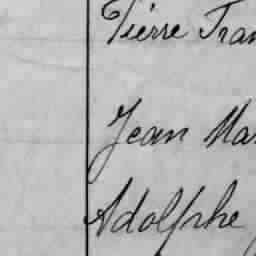 Pierre Fran
Jean Mar
Adolphe